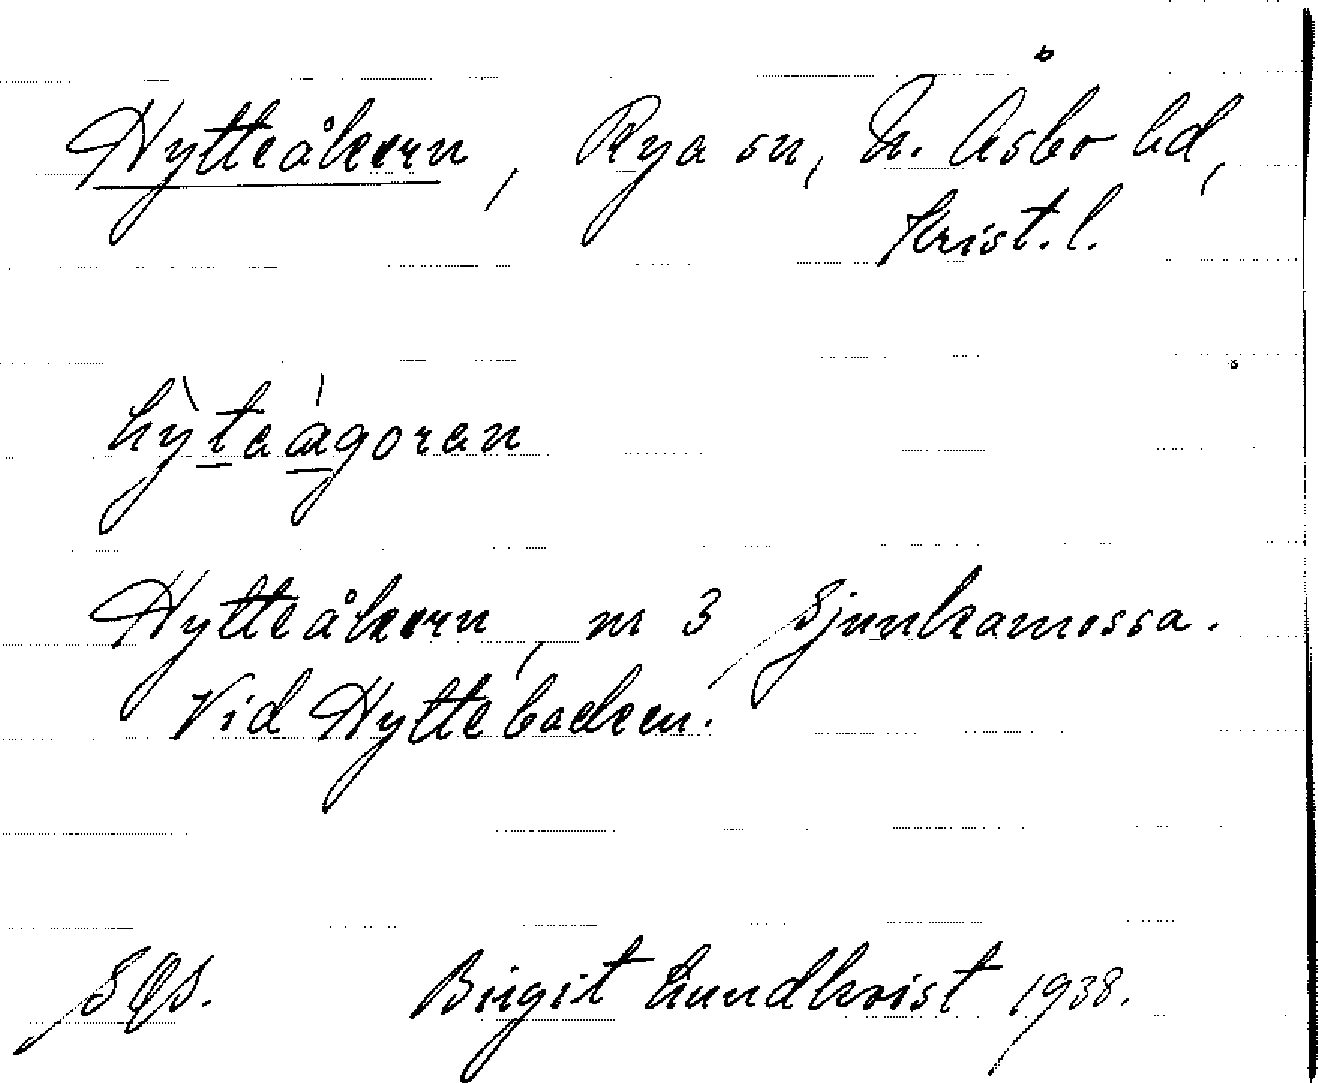 Hytteåkern, Rya sn, N. Åsbo hd,
Krist. l.
hỳteágoren
Hytteåkern, nr 3 Sjunkamossa.
Vid Hyttebacken.
Birgit Lundkvist 1938.